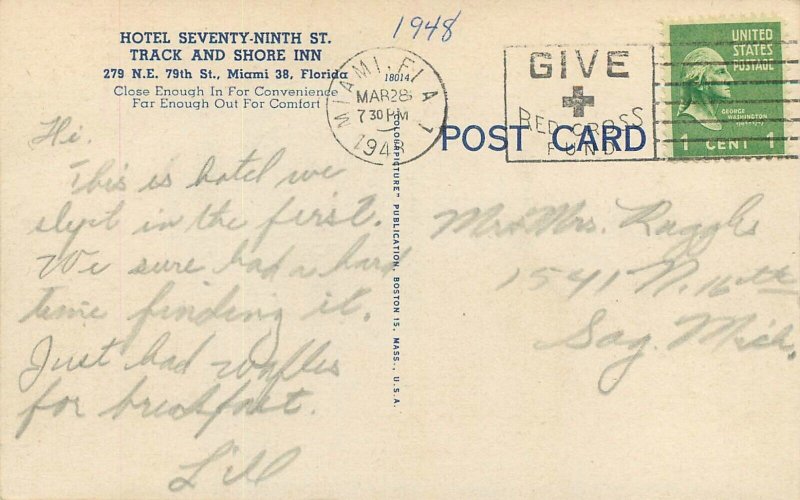 1948
HOTEL SEVENTY-NINTH ST.
TRACK AND SHORE INN
279 N.E. 79th St., Miami 38, Florida
Close Enough In For Convenience
Far Enough Out For Comfort
18014
MIAMI, FLA
MAR 28
7 30 PM
1948
GIVE
RED CROSS
FUND
UNITED
STATES
POSTAGE
GEORGE
WASHINGTON
1 CENT 1
POST CARD
COLOURPICTURE" PUBLICATION, BOSTON 15, MASS., U.S.A.
Hi.
This is hotel we
slept in the first.
We sure had a hard
time finding it.
Just had waffles
for breakfast.
Lil
Mr & Mrs. Ruggles
1541 N. 16th
Sag. Mich.